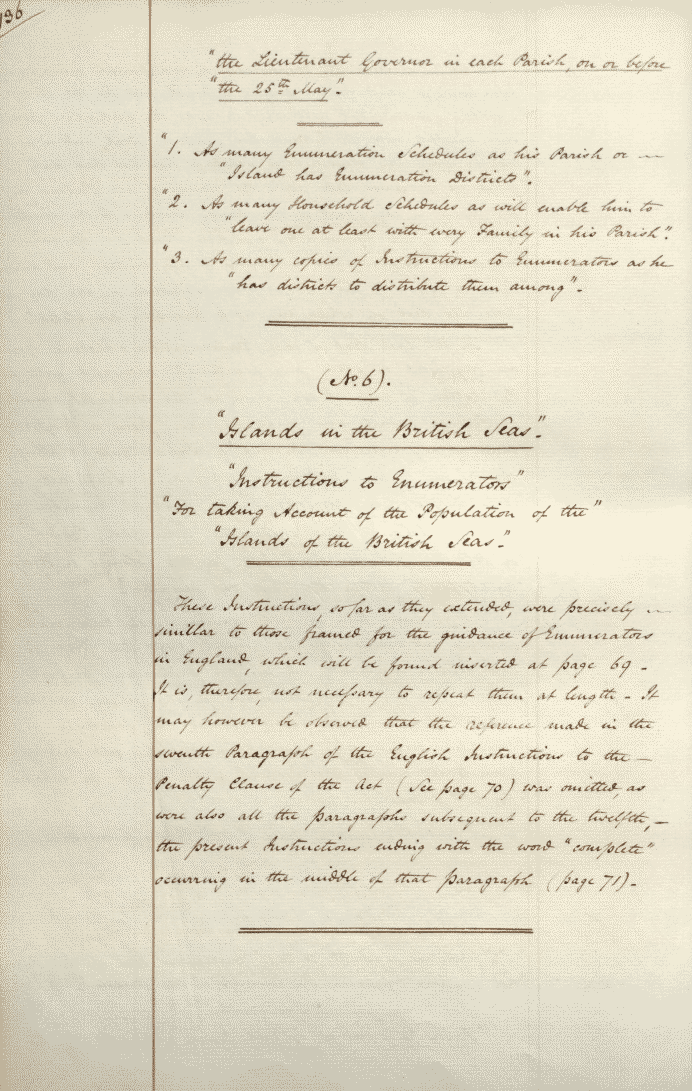 136
"the Lieutenant Governor in each Parish, on or before
"the 25th May".
"1. As many Enumeration Schedules as his Parish or
"Island has Enumeration Districts".
"2. As many Household Schedules as will enable him to
"leave one at least with every Family in his Parish".
"3. As many copies of Instructions to Enumerators as he
"has districts to distribute them among".
(No. 6).
"Islands in the British Seas".
"Instructions to Enumerators"
"For taking Account of the Population of the"
"Islands of the British Seas."
These Instructions, so far as they extended, were precisely
simillar to those framed for the guidance of Enumerators
in England, which will be found inserted at page 69 -
It is, therefore, not necessary to repeat them at length - It
may however be observed that the reference made in the
seventh Paragraph of the English Instructions to the —
Penalty Clause of the Act (See page 70) was omitted, as
were also all the paragraphs subsequent to the twelfth, —
the present Instructions ending with the word "complete"
occurring in the middle of that paragraph (page 71) -